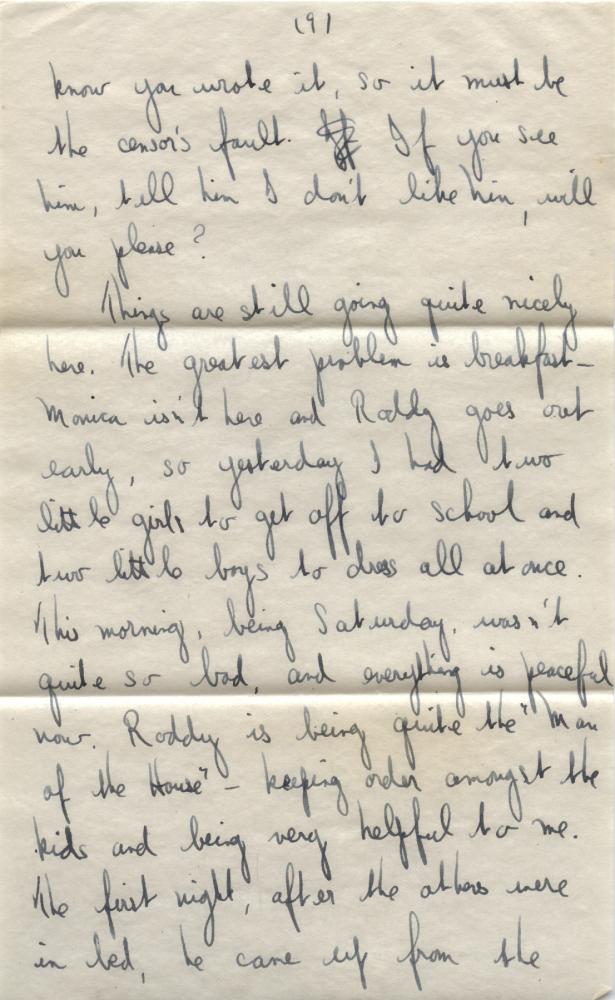 (9)
know you wrote it, so it must be
the censor's fault. If you see
him, tell him I don't like him, will
you please?
Things are still going quite nicely
here. The greatest problem is breakfast –
Monica isn't here and Roddy goes out
early, so yesterday I had two
little girls to get off to school and
two little boys to dress all at once.
This morning, being Saturday, wasn't
quite so bad, and everything is peaceful
now. Roddy is being quite the "Man
of the House" – keeping order amongst the
kids and being very helpful to me.
The first night, after the others were
in bed, he came up from the